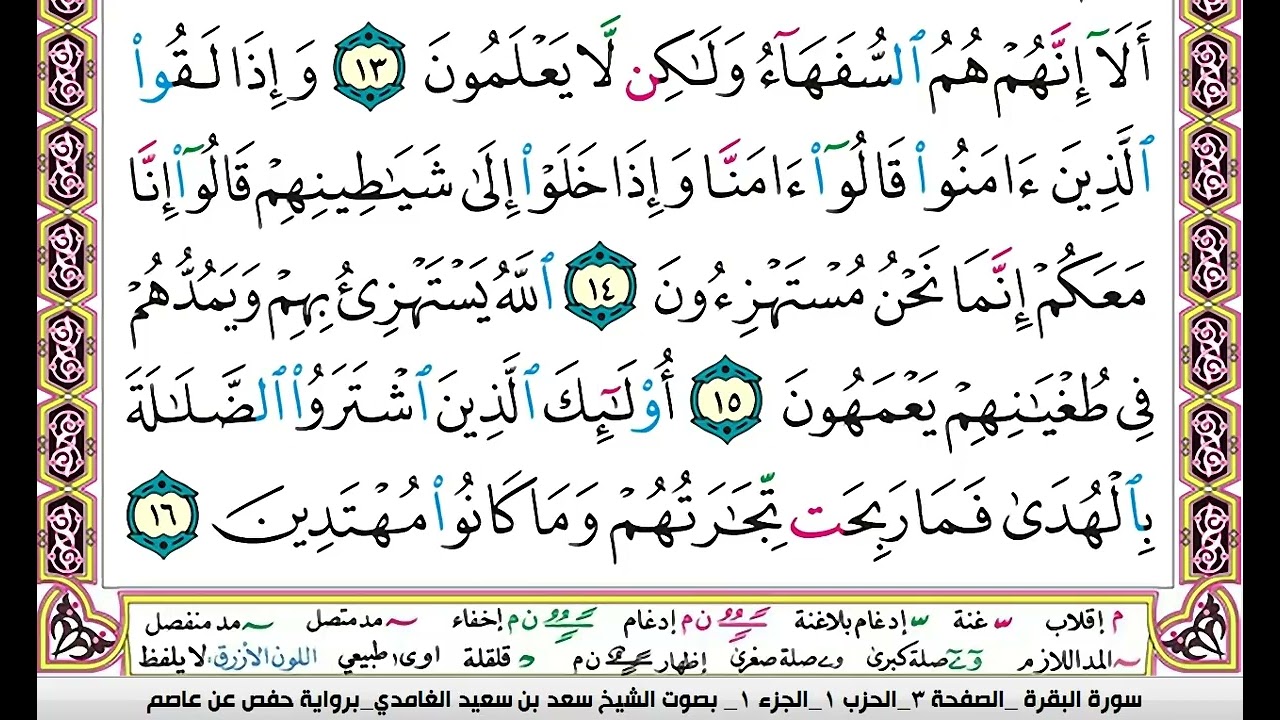 أَلَآ إِنَّهُمْ هُمُ ٱلسُّفَهَآءُ وَلَـٰكِن لَّا يَعْلَمُونَ ١٣ وَإِذَا لَقُوا۟
ٱلَّذِينَ ءَامَنُوا۟ قَالُوٓا۟ ءَامَنَّا وَإِذَا خَلَوْا۟ إِلَىٰ شَيَـٰطِينِهِمْ قَالُوٓا۟ إِنَّا
مَعَكُمْ إِنَّمَا نَحْنُ مُسْتَهْزِءُونَ ١٤ ٱللَّهُ يَسْتَهْزِئُ بِهِمْ وَيَمُدُّهُمْ
فِى طُغْيَـٰنِهِمْ يَعْمَهُونَ ١٥ أُو۟لَـٰٓئِكَ ٱلَّذِينَ ٱشْتَرَوُا۟ ٱلضَّلَـٰلَةَ
بِٱلْهُدَىٰ فَمَا رَبِحَت تِّجَـٰرَتُهُمْ وَمَا كَانُوا۟ مُهْتَدِينَ ١٦
م إقلاب غنة إدغام بلاغنة ن م إدغام ن م إخفاء مد متصل مد منفصل
المد اللازم صلة كبرى صلة صغرى إظهار ن م قلقلة اوى طبيعي اللون الأزرق: لا يلفظ
سورة البقرة _الصفحة ٣_الحزب ١_الجزء ١_ بصوت الشيخ سعد بن سعيد الغامدي_برواية حفص عن عاصم